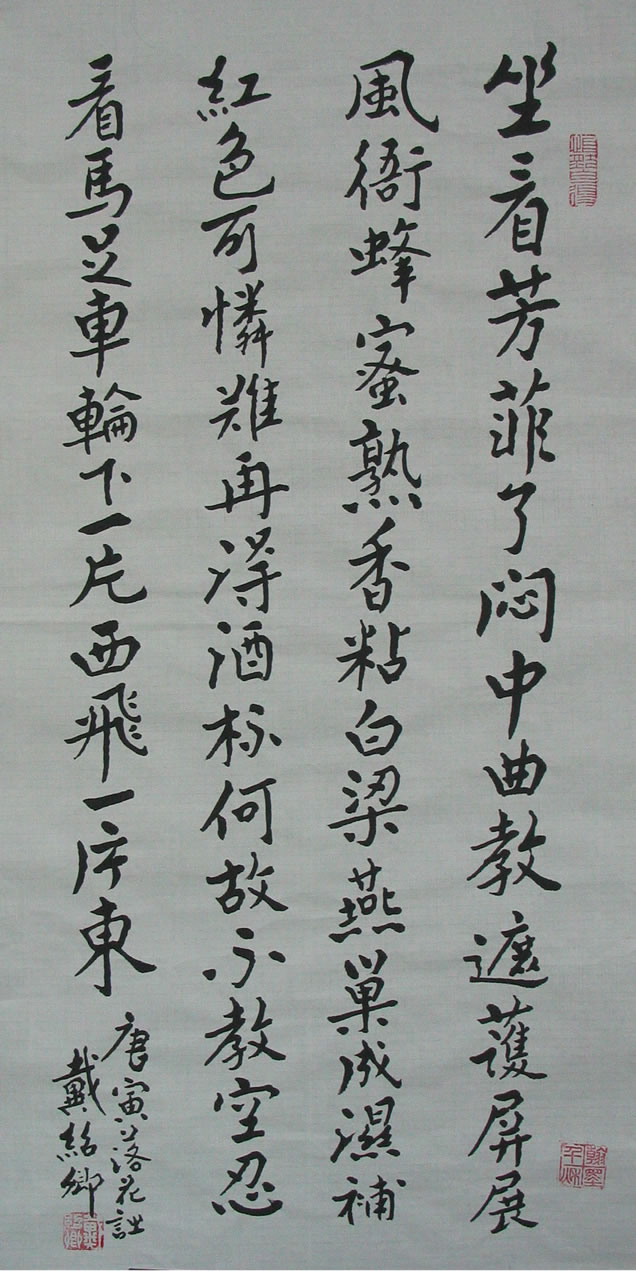 坐看芳菲了闷中曲教遮護屏展
風衙蜂蜜熟香粘白梁燕巢成濕補
紅色可憐難再得酒杯何故不教空忍
看馬足車輪下一片西飛一片東
唐寅落花詩
戴紹卿
翰墨千秋